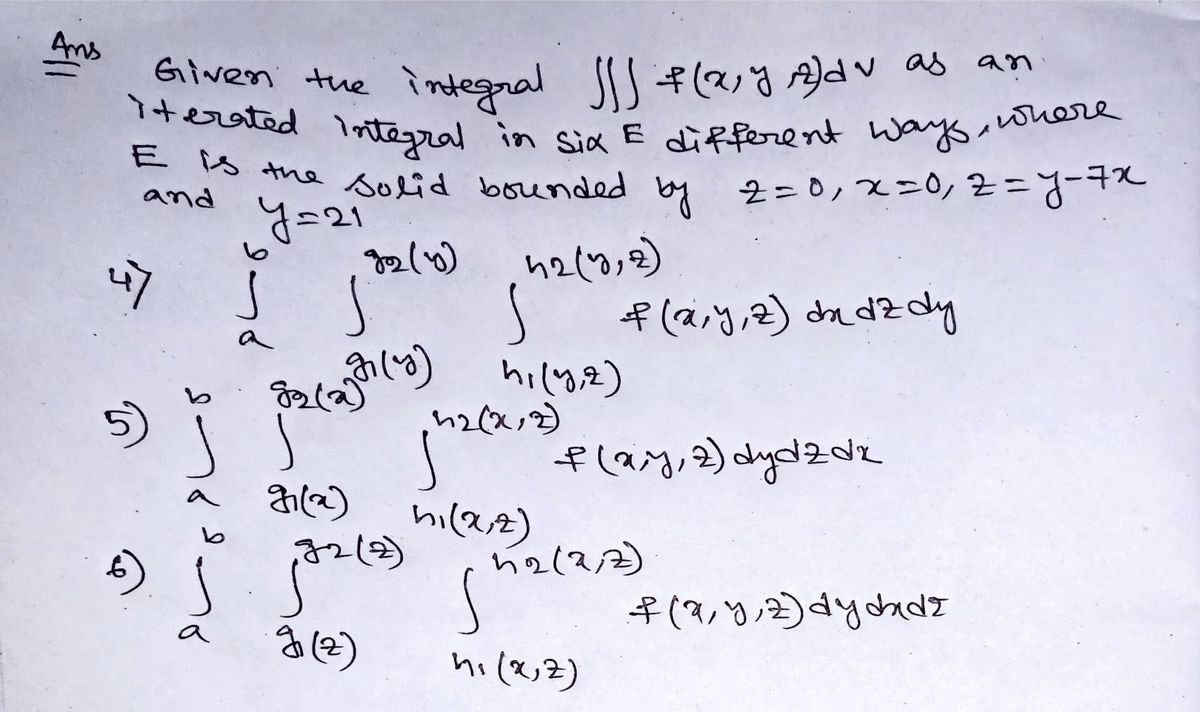 Ans
Given the integral ∫∫∫ f(x, y, z)dv as an
iterated integral in six E different ways, where
E is the solid bounded by z=0, x=0, z=y-7x
and y=21
4) ∫_a^b ∫_{g1(y)}^{g2(y)} ∫_{h1(y,z)}^{h2(y,z)} f(x,y,z) dx dz dy
5) ∫_a^b ∫_{g1(x)}^{g2(x)} ∫_{h1(x,z)}^{h2(x,z)} f(x,y,z) dy dz dx
6) ∫_a^b ∫_{g1(z)}^{g2(z)} ∫_{h1(x,z)}^{h2(x,z)} f(x,y,z) dy dx dz